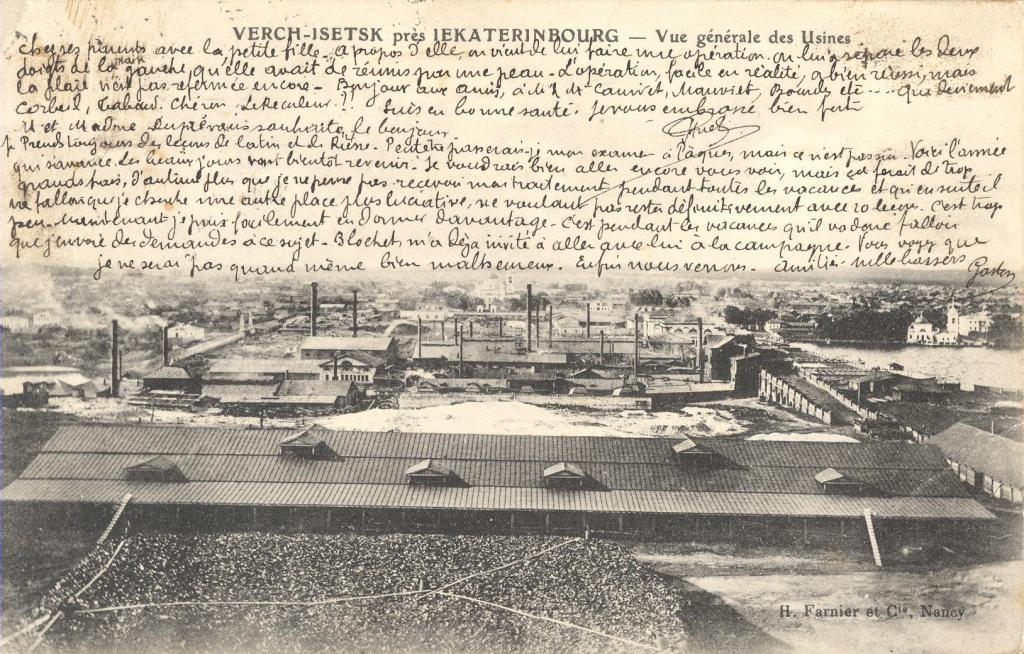 VERCH-ISETSK près IEKATERINBOURG — Vue générale des Usines
chères parents avec la petite fille. a propos d'elle, on vient de lui faire une opération. on lui a séparé les deux
doigts de la main gauche, qu'elle avait de réunis par une peau. L'opération, facile en réalité, a bien réussi, mais
la plaie n'est pas refermée encore. Bonjour aux amis, à Mauviet, etc... que deviennent
Corbeil, Chéron, ?? Suis en bonne santé. Je vous embrasse bien fort
M et Madme souhaite le bonjour.
Je Prends toujours des leçons de latin et de Russe. Peut être passerais-je mon examen à Pâques, mais ce n'est pas sûr. Voici l'année
qui s'avance. Les beaux jours vont bientôt revenir. Je voudrais bien aller encore vous voir, mais ça ferait de trop
grands frais, d'autant plus que je ne pense pas recevoir mon traitement pendant toutes les vacances et qu'ensuite il
va falloir que je cherche une autre place plus lucrative, ne voulant pas rester définitivement avec 20 leçons. C'est trop
peu. Maintenant je puis facilement en donner davantage. C'est pendant les vacances qu'il va donc falloir
que j'envoie des demandes à ce sujet. Blochet m'a déjà invité à aller avec lui à la campagne. Vous voyez que
je ne serai pas quand même bien malheureux. Enfin nous verrons. Amitiés mille baisers
Gaston
H. Farnier et Cie, Nancy